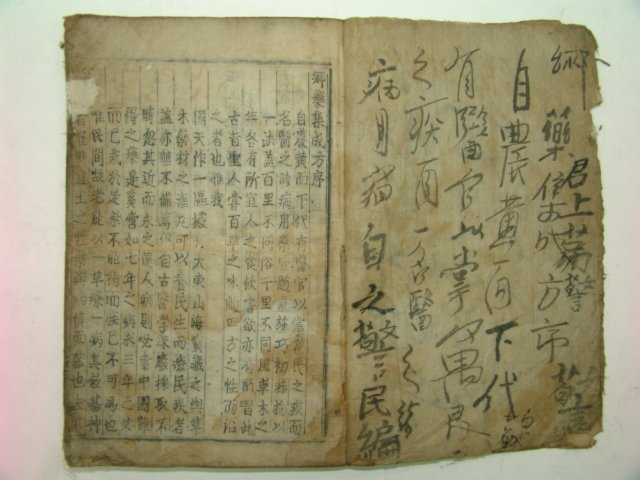 鄕藥集成方序
自農黃而下代
有醫官以掌萬民
之疾而
自之警民編
鄕藥集成方序
自農黃而下代有醫官以掌萬民之疾而
名醫之診病用藥皆隨氣施巧初非拘以
一法盖百里不同俗千里不同風草木之
生各有所宜人之食飮嗜欲亦有所習此
古昔聖人嘗百草之味順四方之性而治
之者也惟我
國天作一區據有大東山海寶藏之興草
木藥材之産凡可以養民生而療民疾者
盖亦無不備焉但自古醫學疎廢採取不
時忽其近而求之遠人病則必索中國難
得之藥是奚啻如七年之病求三年之艾
而已哉於是藥不能得而疾已不可爲也
唯民間故老能以一草療一病其效甚神
者豈非宜土之性藥與病値而然也夫不